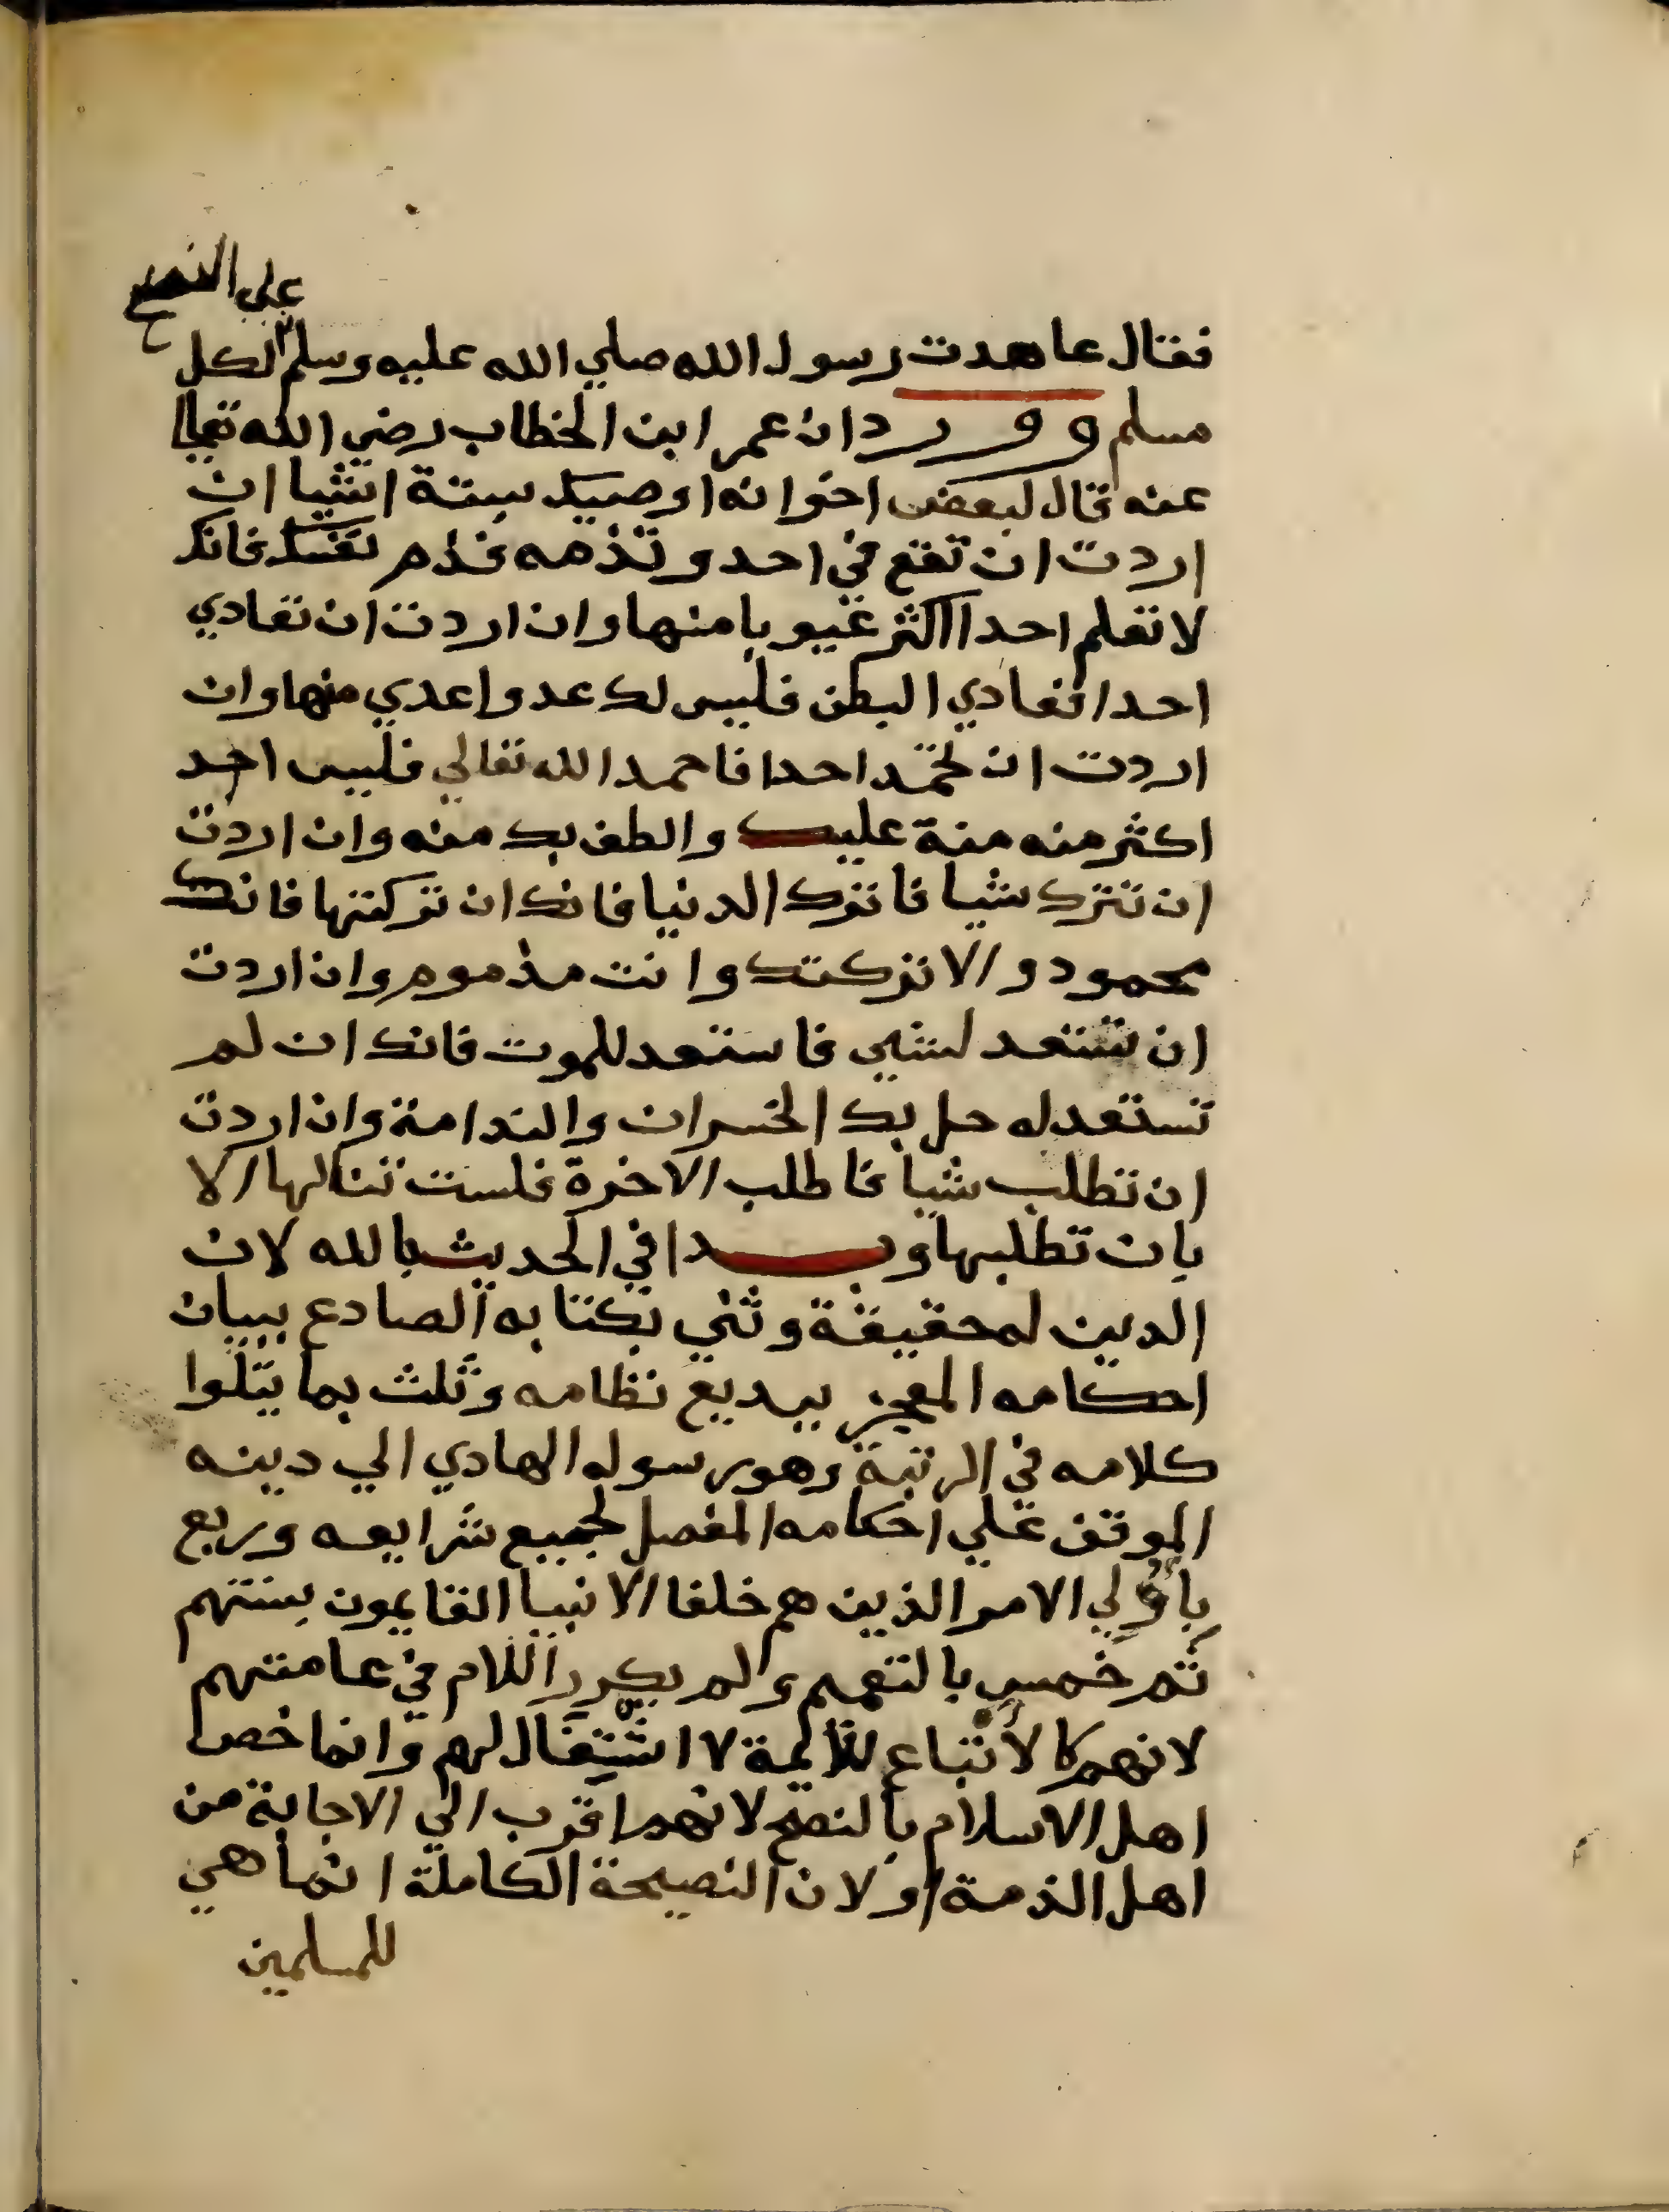 علي النصح
فقال عاهدت رسول الله صلي الله عليه وسلم لكل
مسلم وورد ان عمر ابن الخطاب رضي الله تعالي
عنه قال لبعض اخوانه اوصيك بستة اشيا ان
اردت ان تقع في احد وتذمه فذم نفسك فانك
لا تعلم احدا اكثر عيوبا منها وان اردت ان تعادي
احدا فعادي البطن فليس لك عدو اعدي منها وان
اردت ان تحمد احدا فاحمد الله تعالي فليس احد
اكثر منه منة عليك والطف بك منه وان اردت
ان تترك شيا فاترك الدنيا فانك ان تركتها فانك
محمود والا تركتك وانت مذموم وان اردت
ان تستعد لشي فاستعد للموت فانك ان لم
تستعد له حل بك الخسران والندامة وان اردت
ان تطلب شيا فاطلب الاخرة فلست تنالها الا
بان تطلبها وبدا في الحديث بالله لان
الدين له حقيقة وثني بكتابه الصادع ببيان
احكامه المعجز ببديع نظامه وثلث بما يتلوا
كلامه في الرتبة وهو رسوله الهادي الي دينه
الموقف علي احكامه المفصل لجميع شرايعه وربع
باولي الامر الذين هم خلفا الانبيا القايمون بسنتهم
ثم خمس بالتعميم ولم يكرر اللام في عامتهم
لانهم كالاتباع للايمة لا اشتغال لهم وانما خص
اهل الاسلام بالنصح لانهم اقرب الي الاجابة من
اهل الذمة او لان النصيحة الكاملة انما هي
للمسلمين